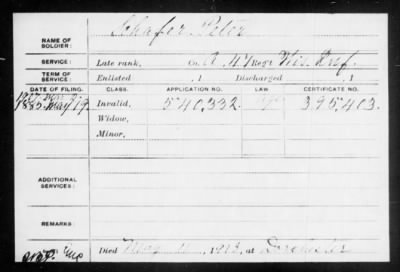 NAME OF SOLDIER: Schafer Peter
SERVICE: Late rank, Co. A. 47 Reg't Wis. Inf.
TERM OF SERVICE: Enlisted , 1 Discharged , 1
DATE OF FILING. CLASS. APPLICATION NO. LAW CERTIFICATE NO.
1885. May 19. Invalid, 540,332 395,403
Widow,
Minor,
ADDITIONAL SERVICES:
REMARKS:
Died May , 1913, at Dorchester